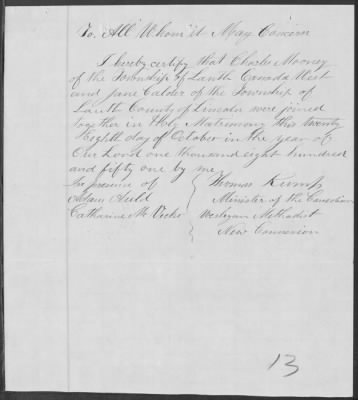 To All Whom it May Concern
I hereby certify that Charles Mooney
of the Township of Louth Canada West
and Jane Calder of the Township of
Louth County of Lincoln were joined
together in Holy Matrimony this twenty
Eighth day of October in the year of
Our Lord one thousand eight hundred
and fifty one by me
In presence of
Adam Auld
Catharine Mc Vicker
Thomas Rump
Minister of the Canadian
Wesleyan Methodist
New Connexion
13